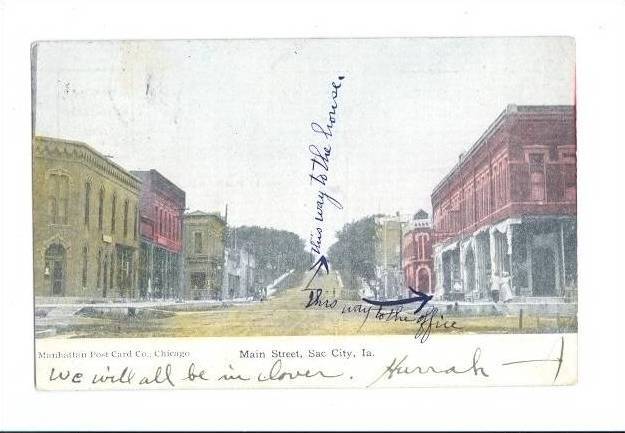 this way to the house.
this way to the office
Manhattan Post Card Co., Chicago
Main Street, Sac City, Ia.
We will all be in clover. Hurrah